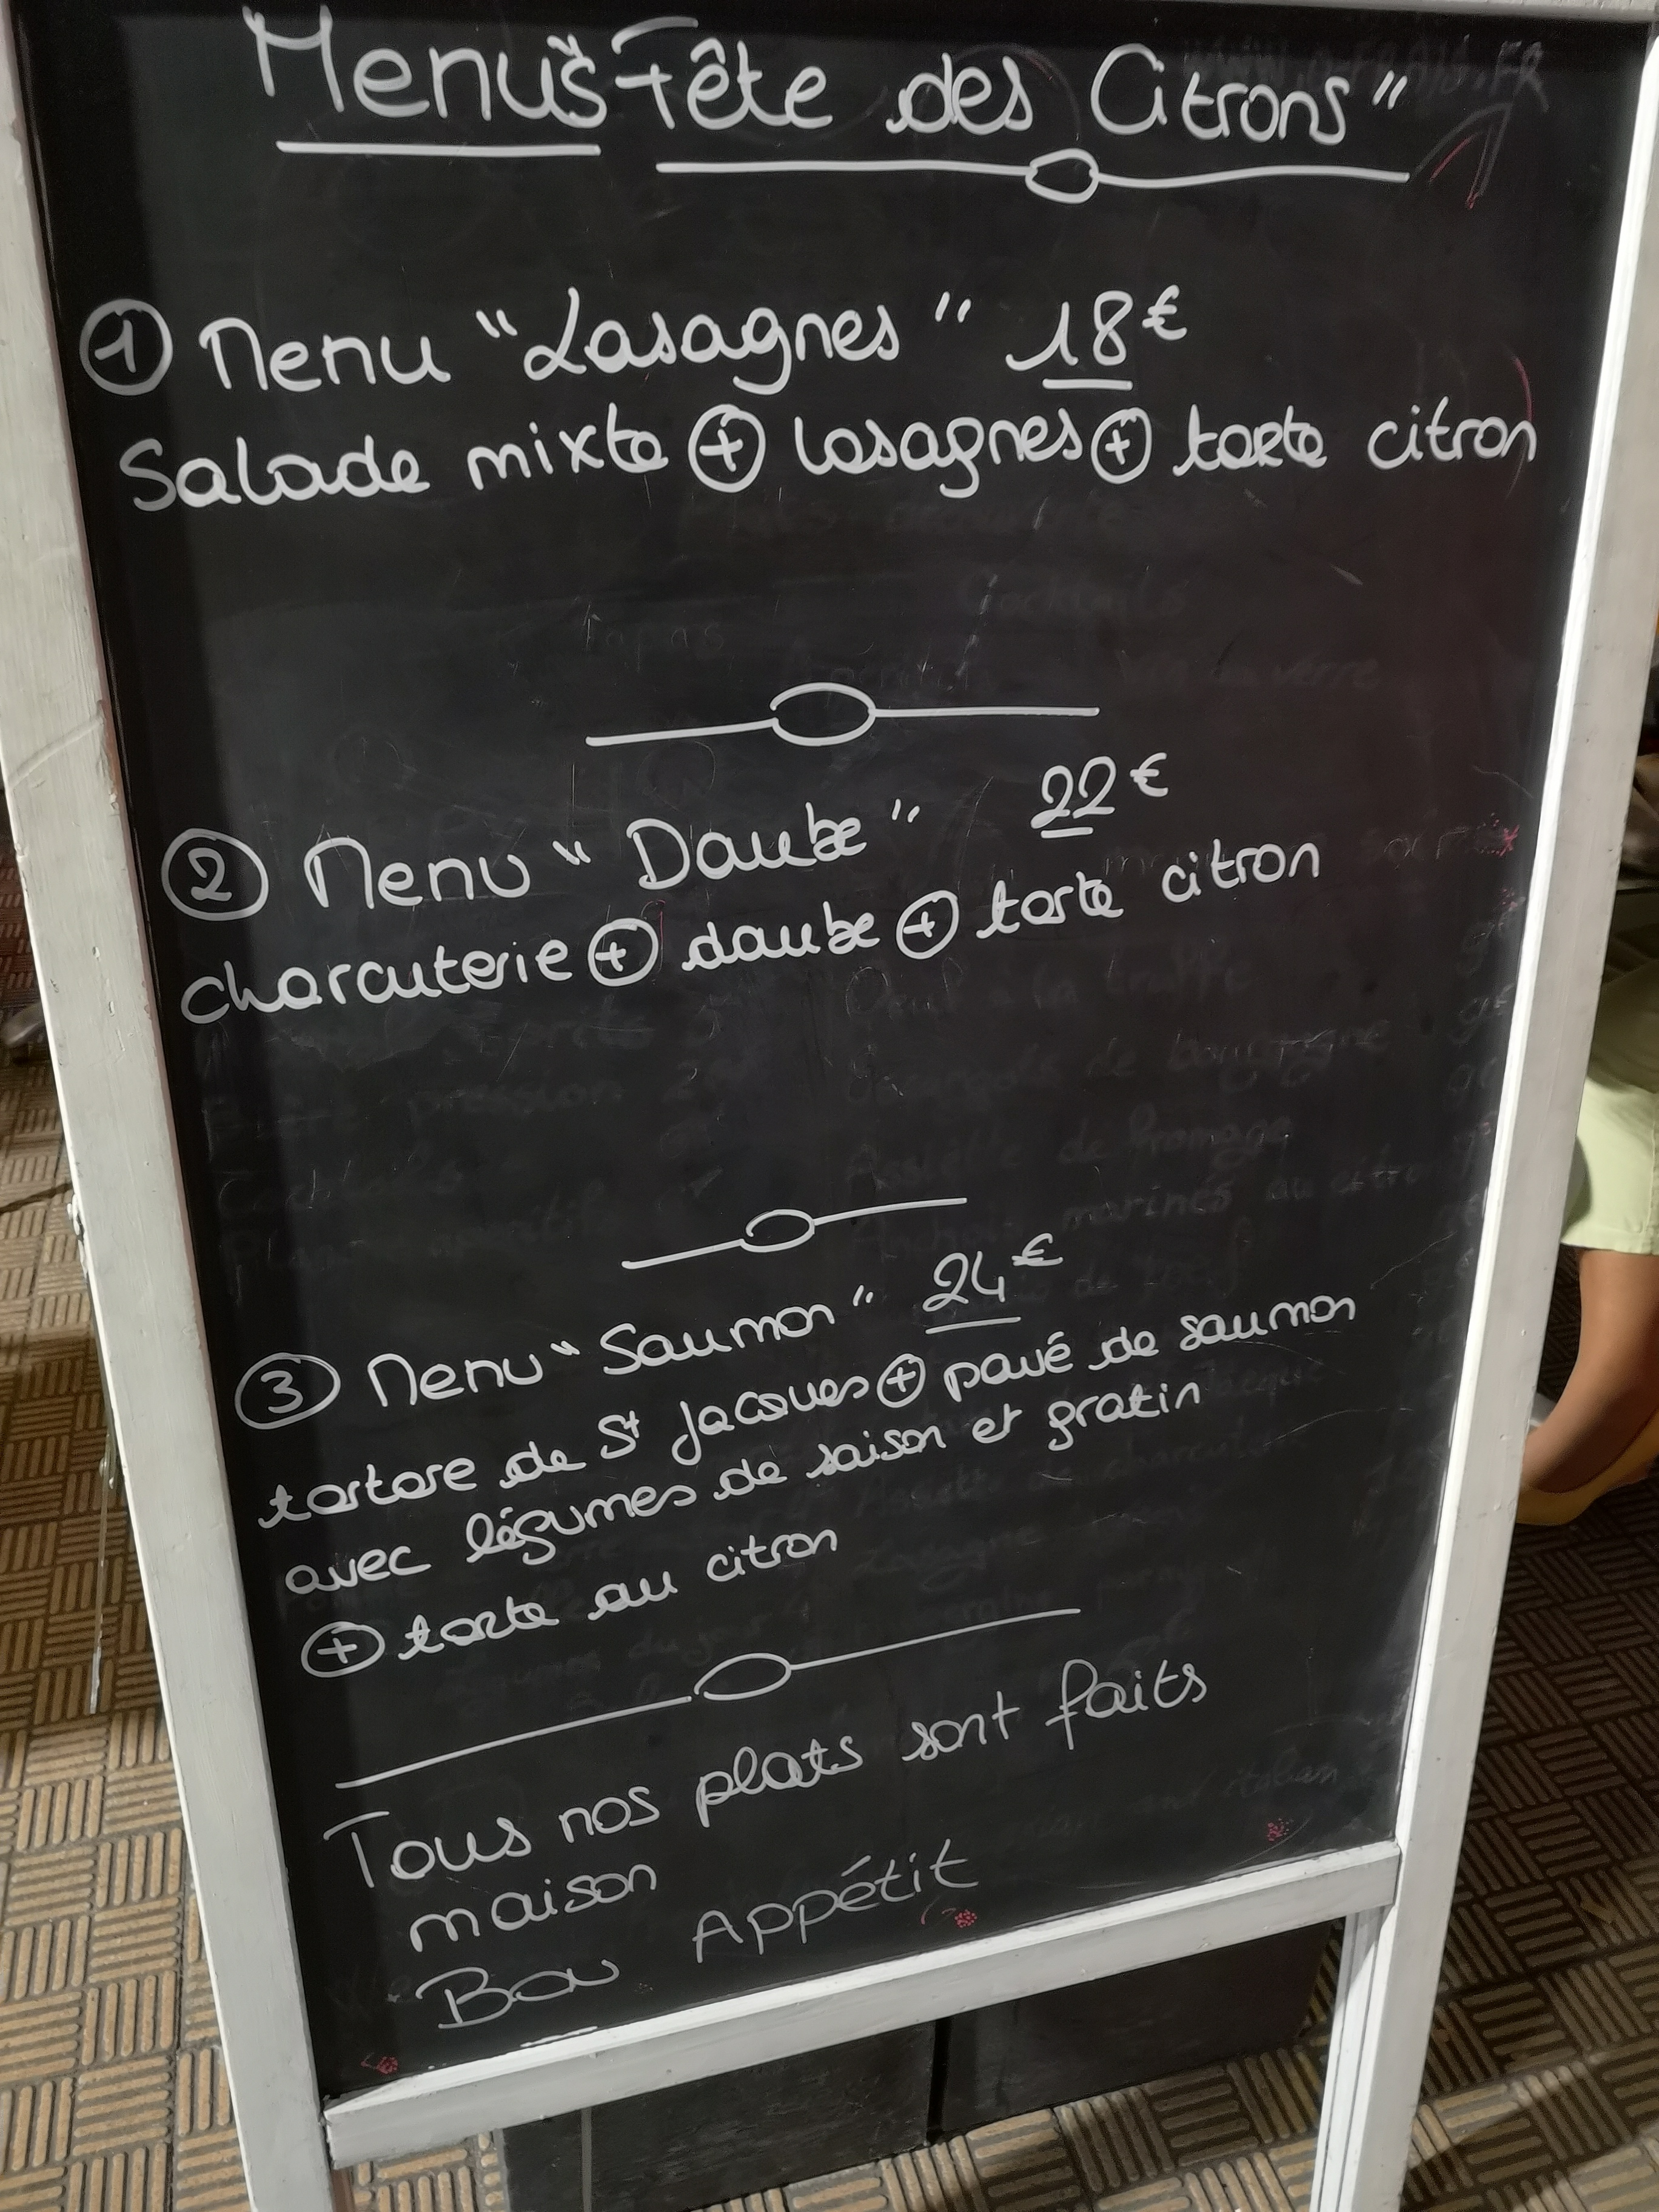 Menus "Fête des Citrons"
1 Menu "Lasagnes" 18€
Salade mixte + lasagnes + tarte citron
2 Menu "Daube" 22€
charcuterie + daube + tarte citron
3 Menu "Saumon" 24€
tartare de St Jacques + pavé de saumon
avec légumes de saison et gratin
+ tarte au citron
Tous nos plats sont faits
maison
Bon Appétit